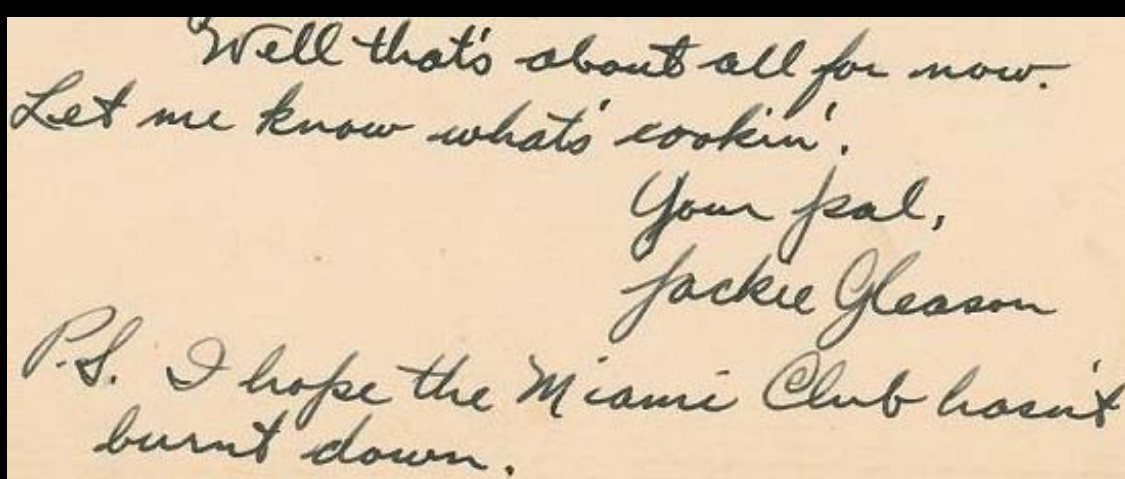 Well that's about all for now.
Let me know what's cookin'.
Your pal,
Jackie Gleason
P.S. I hope the Miami Club hasn't
burnt down.